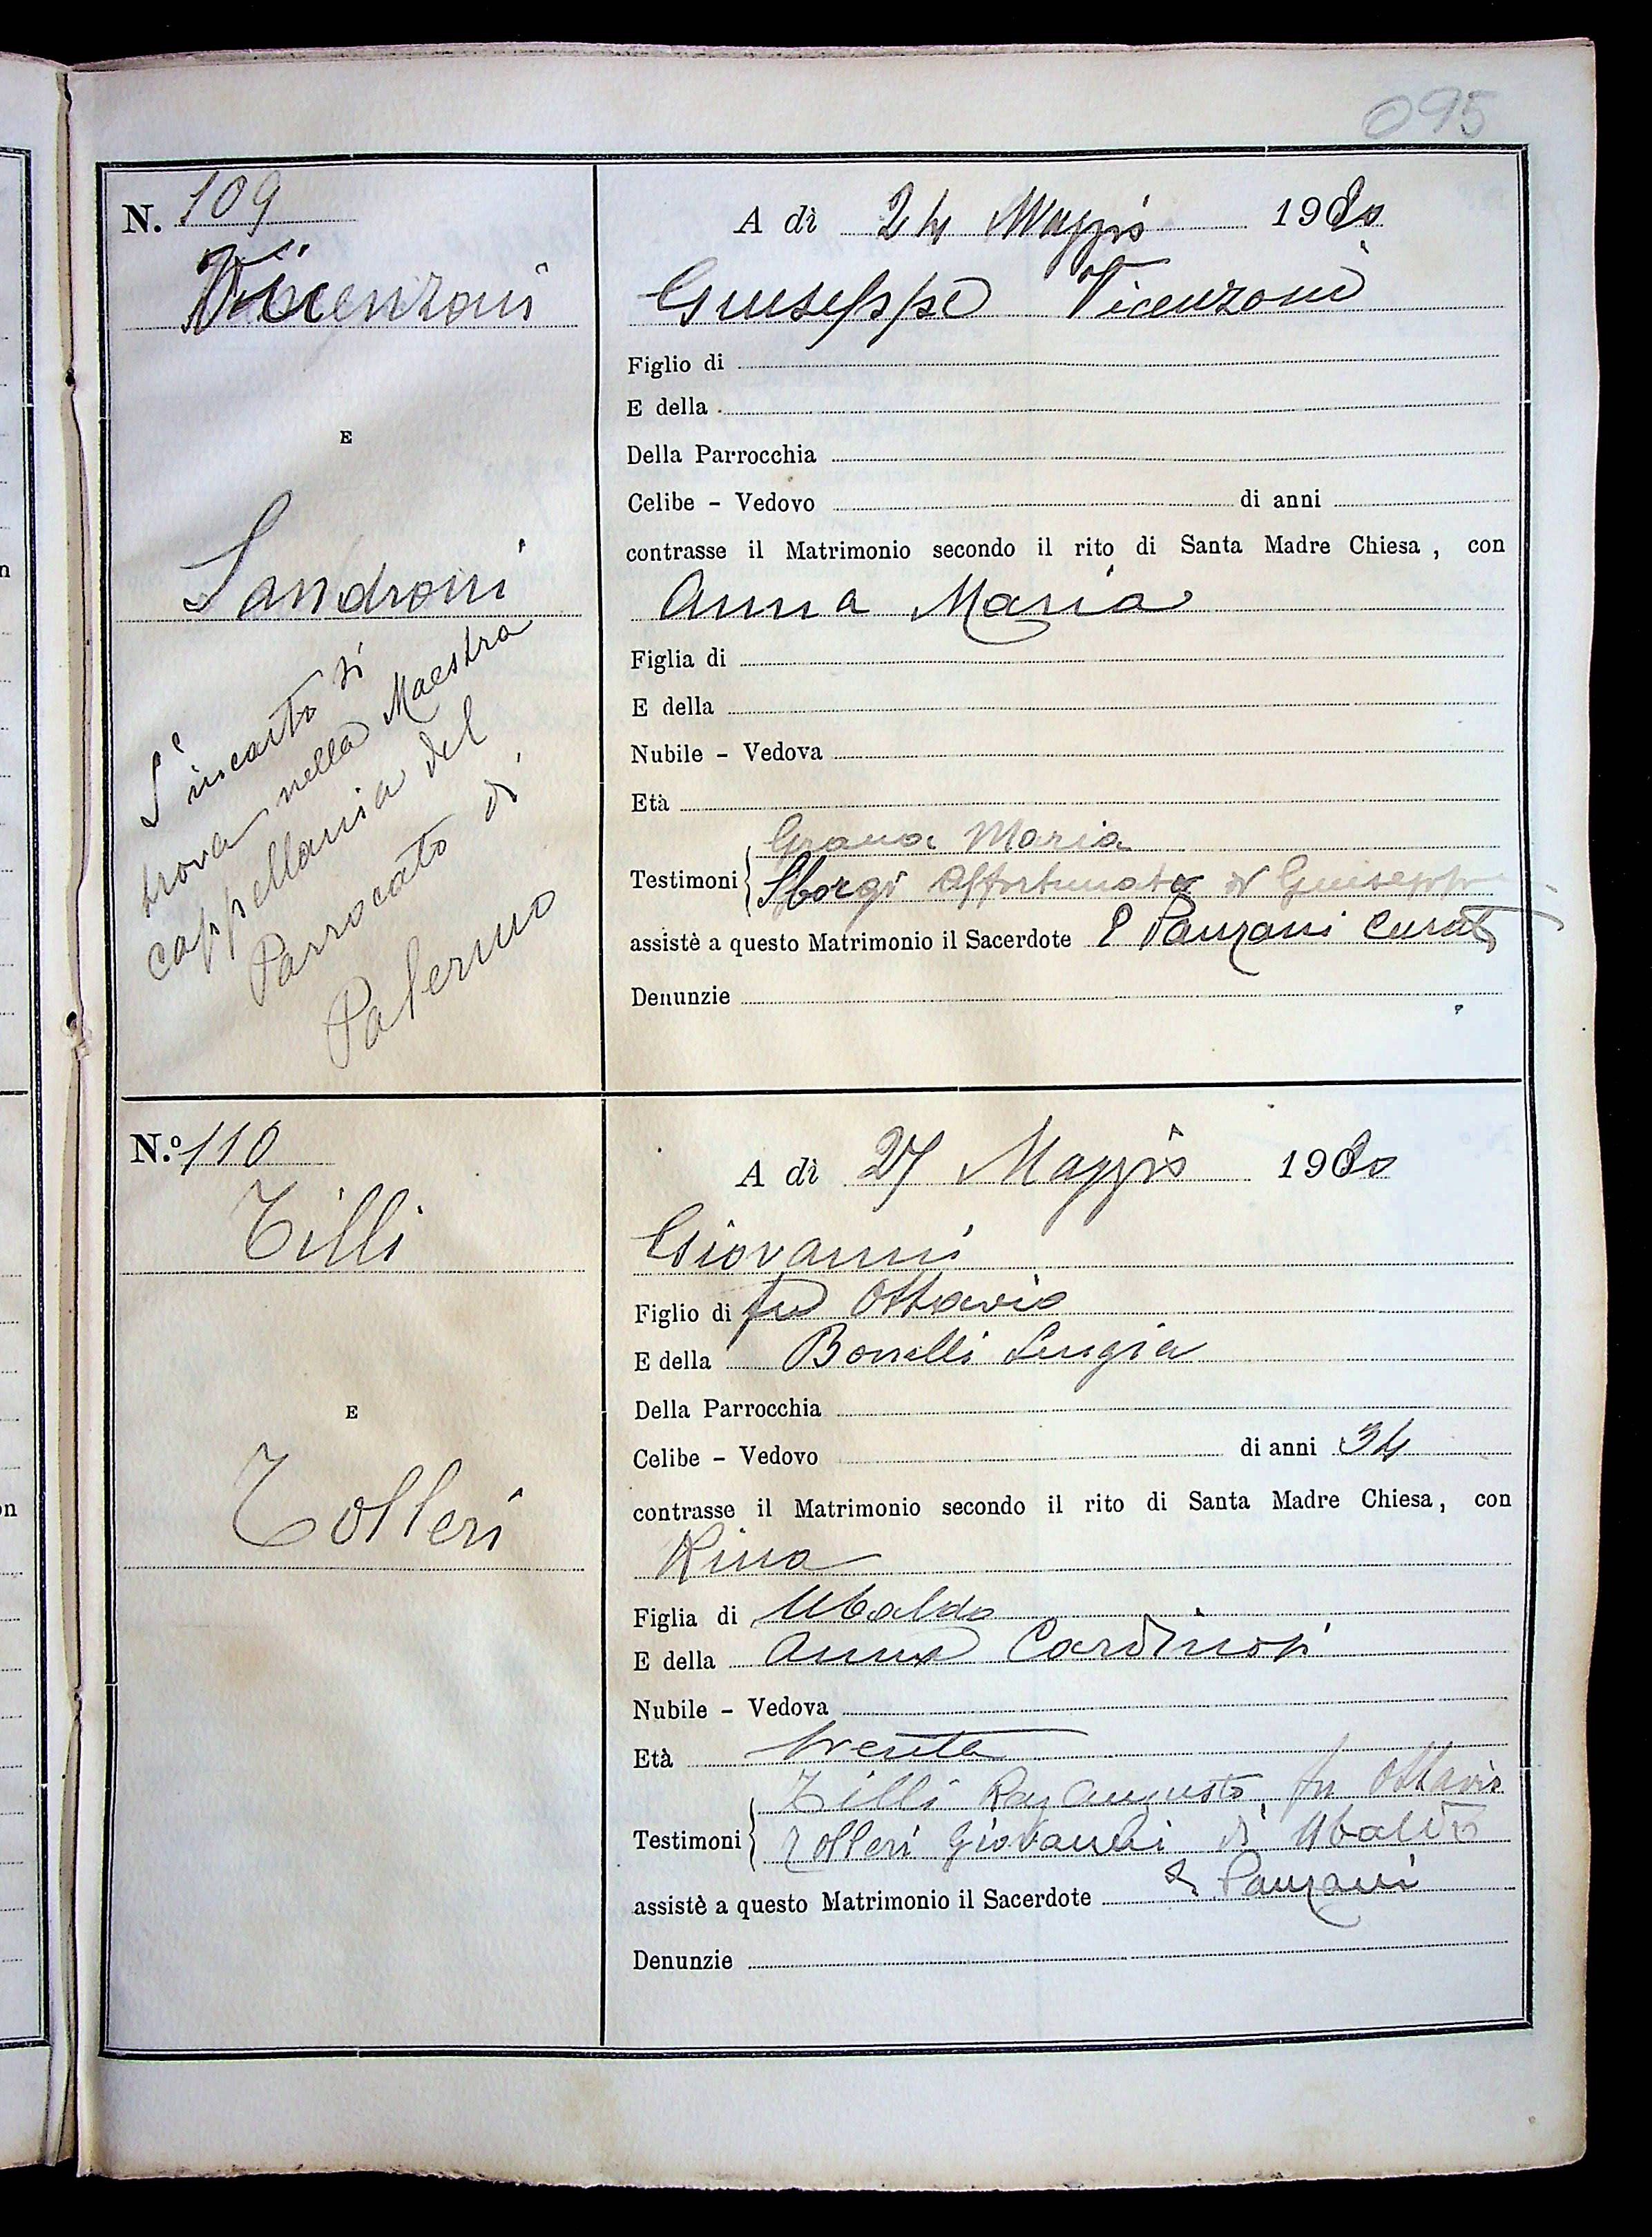 095
N. 109
Vicenzoni
E
Sandroni
L'incarto si
trova nella Maestra
cappellania del
Parrocato di
Palermo
A dì 24 Maggio 19
Giuseppe Vicenzoni
Figlio di
E della
Della Parrocchia
Celibe - Vedovo di anni
contrasse il Matrimonio secondo il rito di Santa Madre Chiesa, con
Anna Maria
Figlia di
E della
Nubile - Vedova
Età
Maria
Testimoni Sborgi Affortunato di Giuseppe
assistè a questo Matrimonio il Sacerdote P Panzani Curato
Denunzie
N.º 110
Tilli
E
Tolleri
A dì 27 Maggio 19
Giovanni
Figlio di fu Ottavio
E della Bonelli Luigia
Della Parrocchia
Celibe - Vedovo di anni 34
contrasse il Matrimonio secondo il rito di Santa Madre Chiesa, con
Rina
Figlia di Ubaldo
E della Anna
Nubile - Vedova
Età trenta
Tilli Augusto fu Ottavio
Testimoni Tolleri Giovanni di Ubaldo
assistè a questo Matrimonio il Sacerdote Panzani
Denunzie